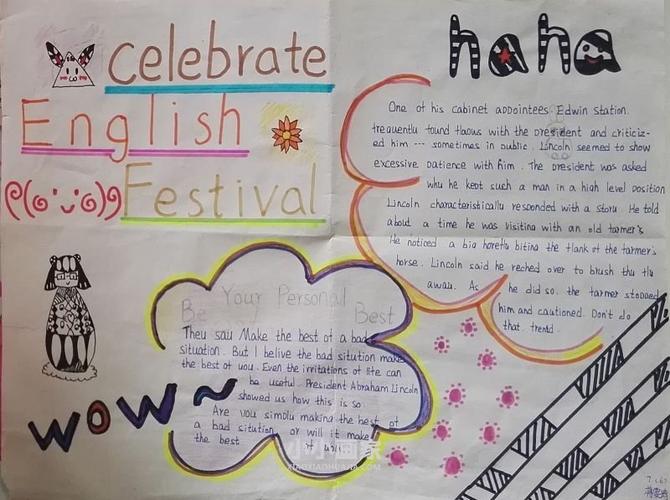 celebrate
English
Festival
haha
One of his cabinet appointees Edwin Station.
frequently found flaows with the president and criticiz-
ed him --- sometimes in public. Lincoln seemed to show
excessive patience with him. The president was asked
why he kept such a man in a high level position
Lincoln characteristically responded with a story. He told
about a time he was visiting with an old farmer's
He noticed a big horefly biting the flank of the farmer's
horse. Lincoln said he reched over to blush thu flu
away. As he did so. the farmer stopped
him and cautioned. Don't do
that frend.
Be Your Personal Best
They say Make the best of a bad
situation. But I belive the bad sitution make
the best of you. Even the irritations of life can
be useful. President Abraham Lincoln
showed us how this is so.
Are you simply making the best of
a bad sitution or will it make
the best of you
wow~
小小画家
XIAOXIAOHUAJIA.COM